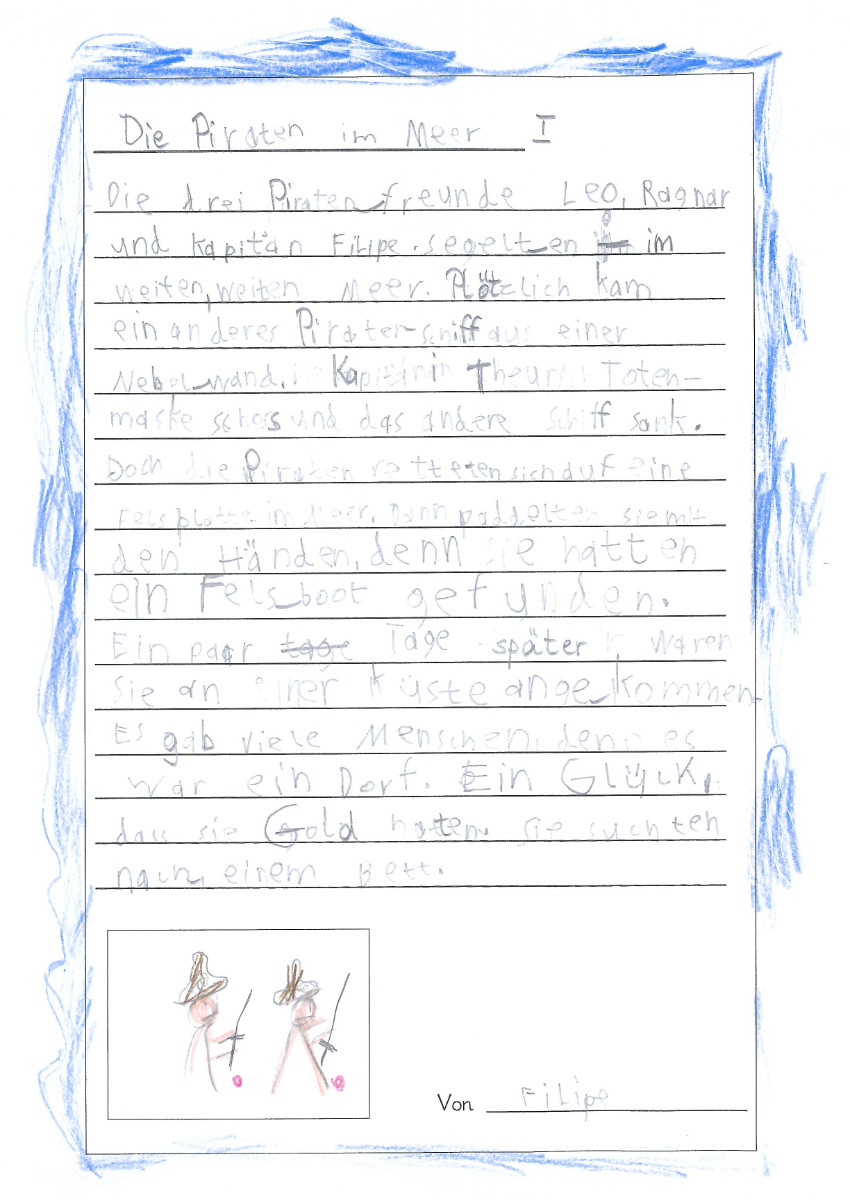 Die Piraten im Meer I
Die drei Piratenfreunde Leo, Ragnar
und Kapitän Filipe segelten im
weiten, weiten Meer. Plötzlich kam
ein anderes Piratenschiff aus einer
Nebelwand. Kapitänin Toten-
maske schoss und das andere Schiff sank.
Doch die Piraten retteten sich auf eine
Felsplatte im Meer. Dann paddelten sie mit
den Händen, denn sie hatten
ein Felsboot gefunden.
Ein paar tage Tage später waren
Sie an einer Küste angekommen.
Es gab viele Menschen, denn es
war ein Dorf. Ein Glück,
dass sie Gold haten. Sie suchten
nach einem Bett.
Von Filipe